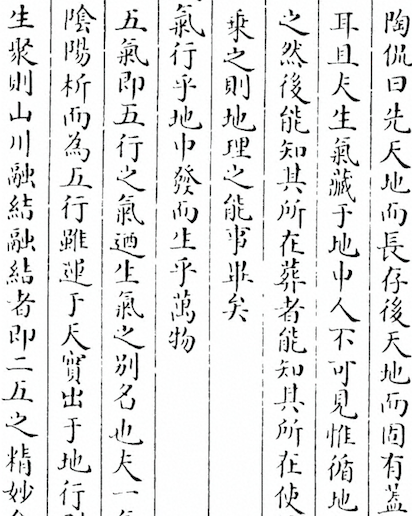 陶侃曰先天地而長存後天地而固有蓋
耳且夫生氣藏于地中人不可見惟循地
之然後能知其所在葬者能知其所在使
乗之則地理之能事畢矣
氣行乎地中發而生乎萬物
五氣即五行之氣廼生氣之別名也夫一
陰陽析而為五行雖運于天實出于地行
生聚則山川融結融結者即二五之精妙